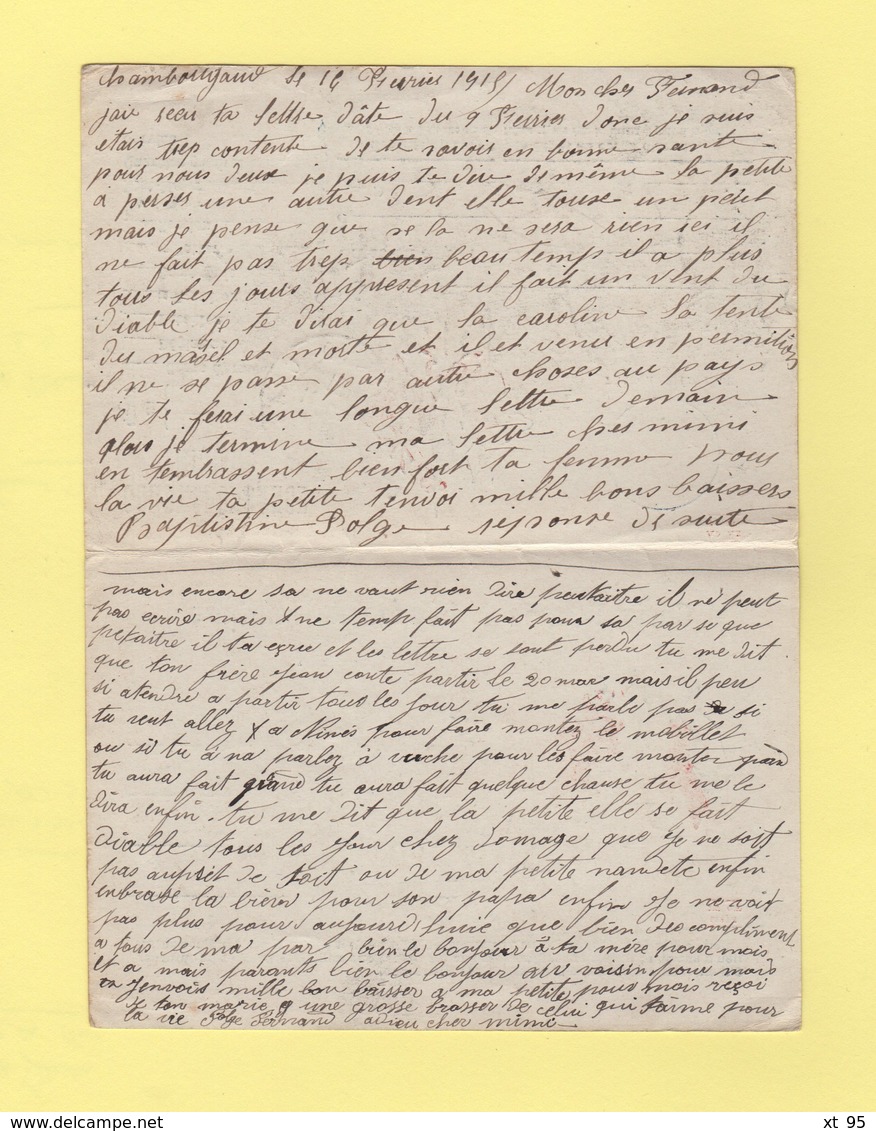 Chambougaud le 14 Fevrier 1915/ Mon cher Fernand
jaie recu ta lettre dâte du 9 Fevrier donc je suis
etais trep contente de te savoir en bonne santé
pour nous deux je puis te dire de même la petite
a perser une autre dent elle touse un petit
mais je pense que se la ne sera rien ici il
ne fait pas trep bien beau temps il a plus
tous les jours appresent il fait un vent du
diable je te dirai que la caroline la tente
du masel et morte et il et venu en permition
il ne se passe par autre choses au pays
je te ferai une longue lettre demain
alors je termine ma lettre cher mimi
en tembrassent bien fort ta femme pour
la vie ta petite tenvoi mille bons baissers
Baptistine Polge reponse de suite
mais encore sa ne vaut rien dire peutaitre il ne peut
pas ecrire mais ne temp fait pas pour sa par se que
petaitre il ta ecrie et les lettre se sont perdu tu me dit
que ton frère jean conte partir le 20 mar mais il peu
si atendre a partir tous les jour tu me parle pas si
tu veut allez a Nimes pour faire montez le mobillet
ou si tu à na parlez à pour les faire monter
tu aura fait grand tu aura fait quelque chause tu me le
dira enfin. tu me dit que la petite elle se fait
diable tous les jour chez domage que je ne soit
pas auprêt de toit ou de ma petite nandete enfin
enbrase la bien pour son papa enfin je ne voit
pas plus pour aujourd'huie que bien des compliment
a tous de ma par bien le bonjour à ta mère pour mois
et a mais parants bien le bonjour au voisin pour mois
jenvois mille bon baisser a ma petite pour mois reçoi
de ton marie une grosse brasser de celui qui taime pour
la vie Polge Fernand adieu cher mimi
xt 95